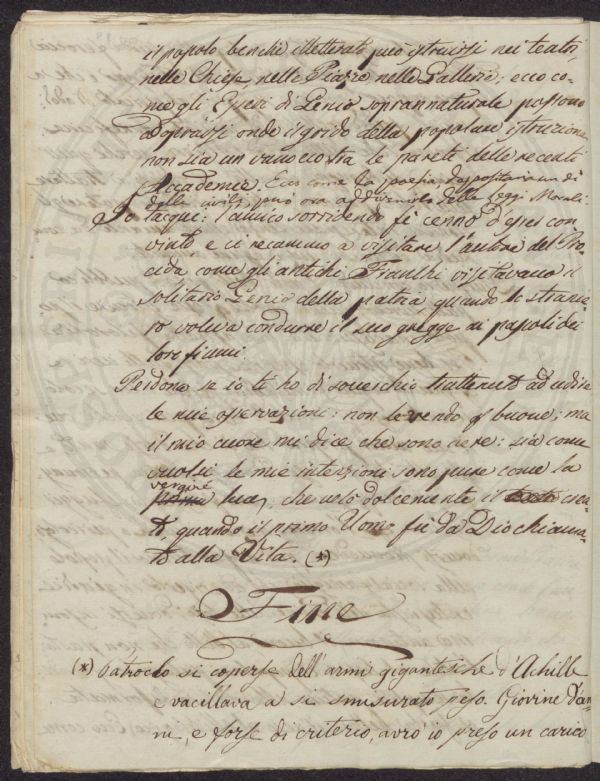 il popolo benchè illetterato può istruirsi nei teatri,
nelle Chiese, nelle Piazze nelle Gallerie; ecco co-
me gli Esseri di Genio soprannaturale possono
adoprarsi onde il grido della popolare istruzione
non sia un vano eco tra le pareti delle recenti
Accademie. Ecco come la poesia depositaria un dì
delle civili, può ora addivenirlo delle Leggi Morali.
Io tacque: l'amico sorridendo fè cenno d'esser con
vinto, e ci recammo a visitare l'autore del Pro
cida, come gli antichi Franchi visitavano il
solitario Genio della patria, quando lo stranie
ro voleva condurre il suo gregge ai pascoli dei
loro fiumi.
Perdona se io te ho di soverchio trattenuto ad udire
le mie osservazioni: non le vendo p buone; ma
il mio cuore mi dice che sono vere: sia come
vuolsi le mie intenzioni sono pure come la
vergine
prima luce, che velò dolcemente il crea-
to, quando il primo Uomo fù da Dio chiama-
to alla Vita. (*)
Fine
(*) Patroclo si coperse dell'armi gigantesche d'Achille
e vacillava a sì smisurato peso. Giovine d'an
ni, e forse di criterio, avrò io preso un carico